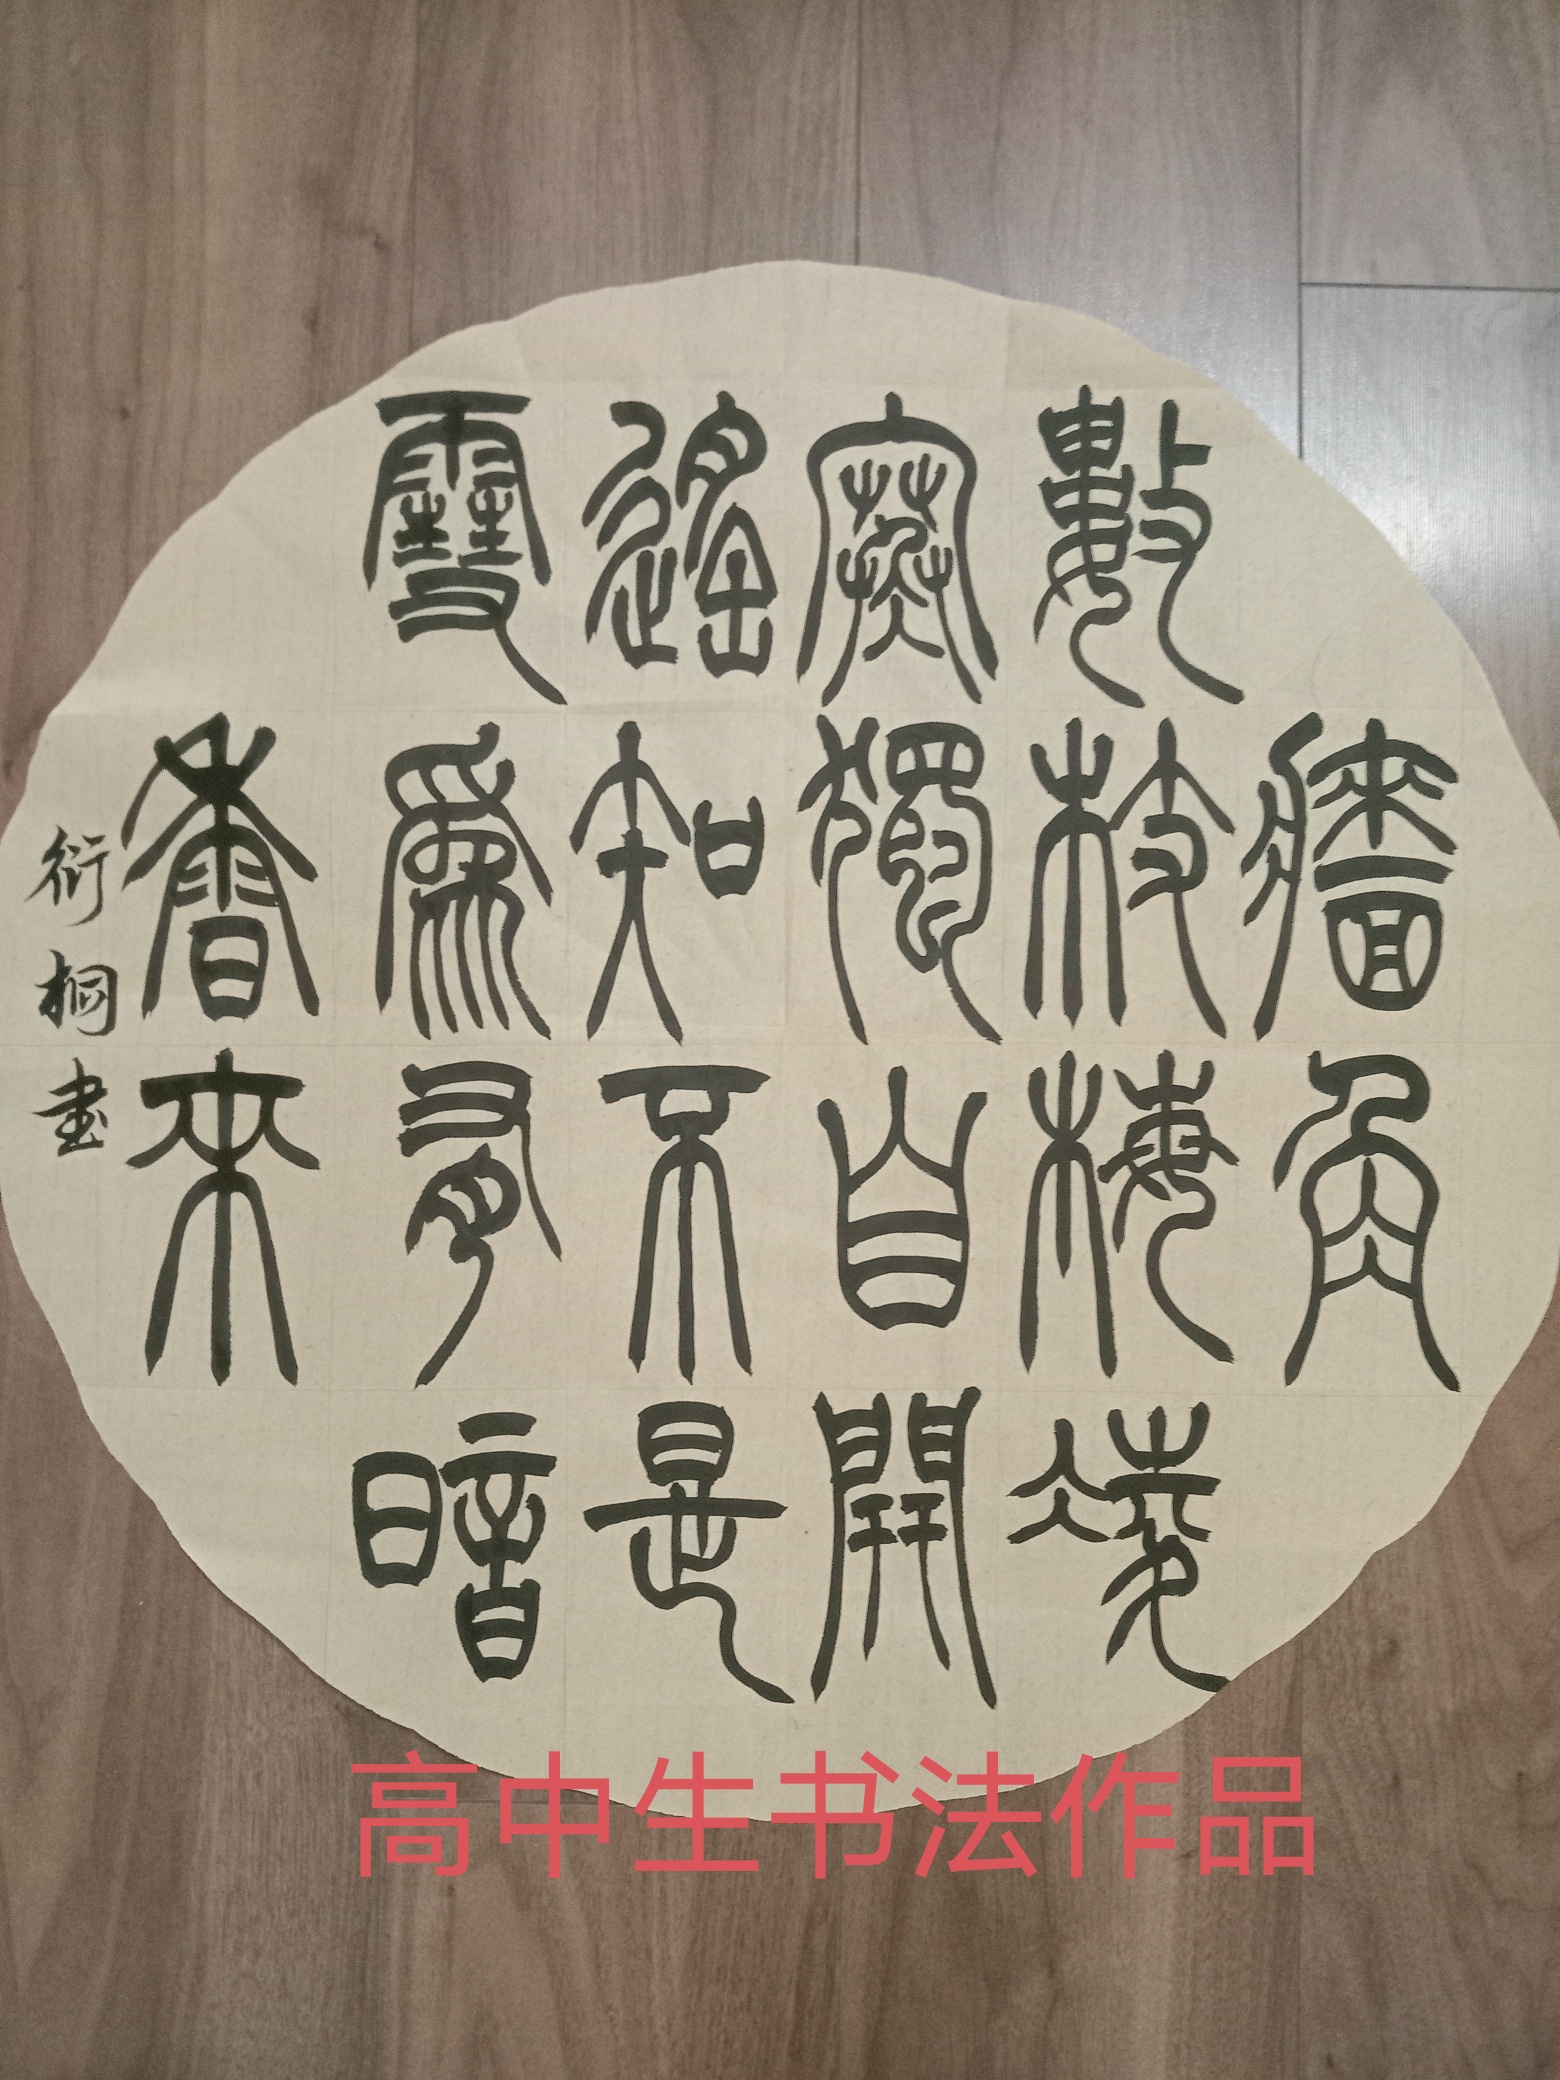 牆角
數枝梅凌
寒獨自開
遙知不是
雪為有暗
香來
衍桐書
高中生书法作品